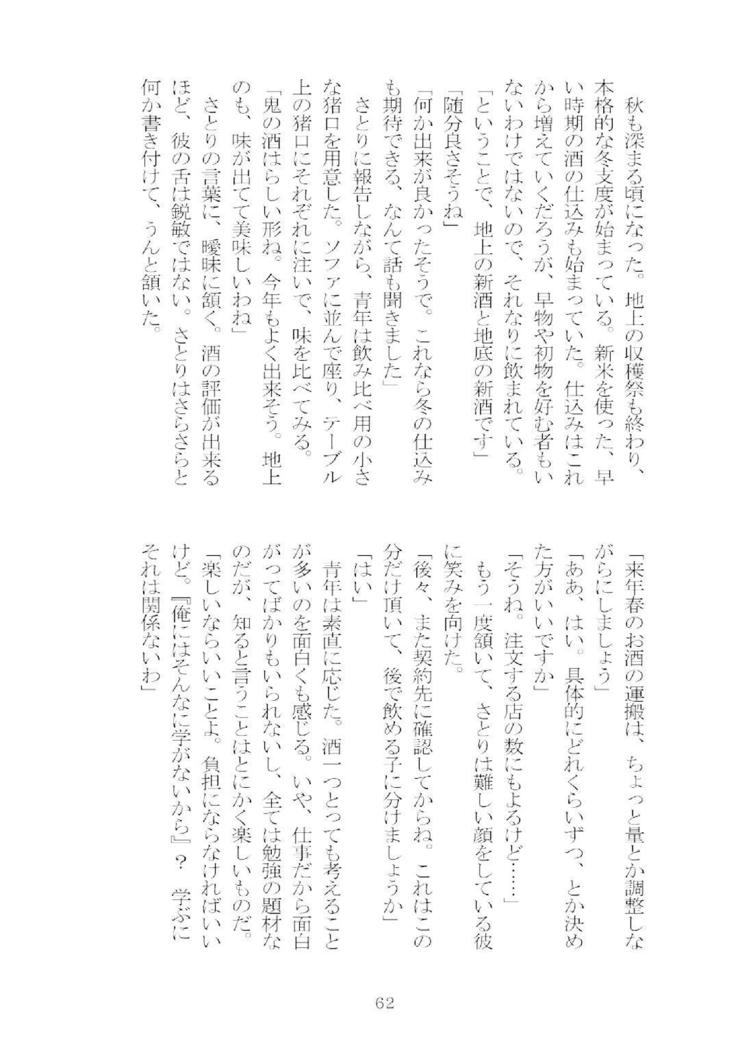 秋も深まる頃になった。地上の収穫祭も終わり、
本格的な冬支度が始まっている。新米を使った、早
い時期の酒の仕込みも始まっていた。仕込みはこれ
から増えていくだろうが、早物や初物を好む者もい
ないわけではないので、それなりに飲まれている。
「ということで、地上の新酒と地底の新酒です」
「随分良さそうね」
「何か出来が良かったそうで。これなら冬の仕込み
も期待できる、なんて話も聞きました」
　さとりに報告しながら、青年は飲み比べ用の小さ
な猪口を用意した。ソファに並んで座り、テーブル
上の猪口にそれぞれに注いで、味を比べてみる。
「鬼の酒はらしい形ね。今年もよく出来そう。地上
のも、味が出てて美味しいわね」
　さとりの言葉に、曖昧に頷く。酒の評価が出来る
ほど、彼の舌は鋭敏ではない。さとりはさらさらと
何か書き付けて、うんと頷いた。
「来年春のお酒の運搬は、ちょっと量とか調整しな
がらにしましょう」
「ああ、はい。具体的にどれくらいずつ、とか決め
た方がいいですか」
「そうね。注文する店の数にもよるけど……」
　もう一度頷いて、さとりは難しい顔をしている彼
に笑みを向けた。
「後々、また契約先に確認してからね。これはこの
分だけ頂いて、後で飲める子に分けましょうか」
「はい」
　青年は素直に応じた。酒一つとっても考えること
が多いのを面白くも感じる。いや、仕事だから面白
がってばかりもいられないし、全ては勉強の題材な
のだが、知ると言うことはとにかく楽しいものだ。
「楽しいならいいことよ。負担にならなければいい
けど。『俺にはそんなに学がないから』？　学ぶに
それは関係ないわ」
62